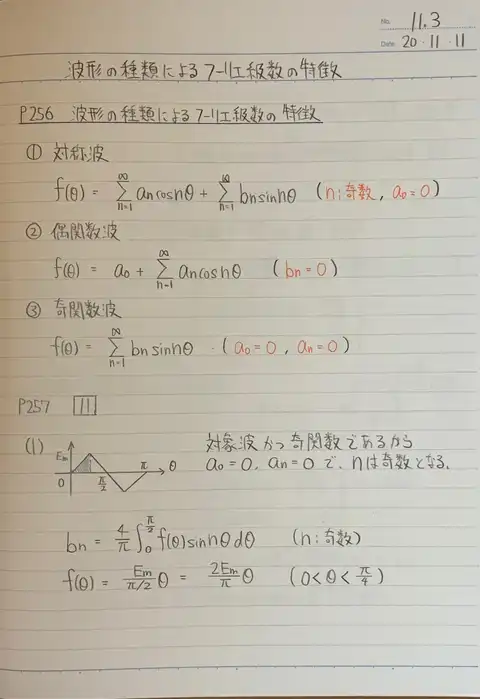 No. 11.3
Date 20・11・11
波形の種類によるフーリエ級数の特徴
P256 波形の種類によるフーリエ級数の特徴
① 対称波
f(θ) = ∑_{n=1}^{∞} an cosnθ + ∑_{n=1}^{∞} bn sinnθ (n:奇数, a₀=0)
② 偶関数波
f(θ) = a₀ + ∑_{n=1}^{∞} an cosnθ (bn=0)
③ 奇関数波
f(θ) = ∑_{n=1}^{∞} bn sinnθ (a₀=0, an=0)
P257 11
(1) Em 0 π/2 π θ 対象波かつ奇関数であるから
a₀=0, an=0 で, nは奇数となる.
bn = 4/π ∫_0^{π/2} f(θ) sinnθ dθ (n:奇数)
f(θ) = Em/π/2 θ = 2Em/π θ (0<θ<π/4)